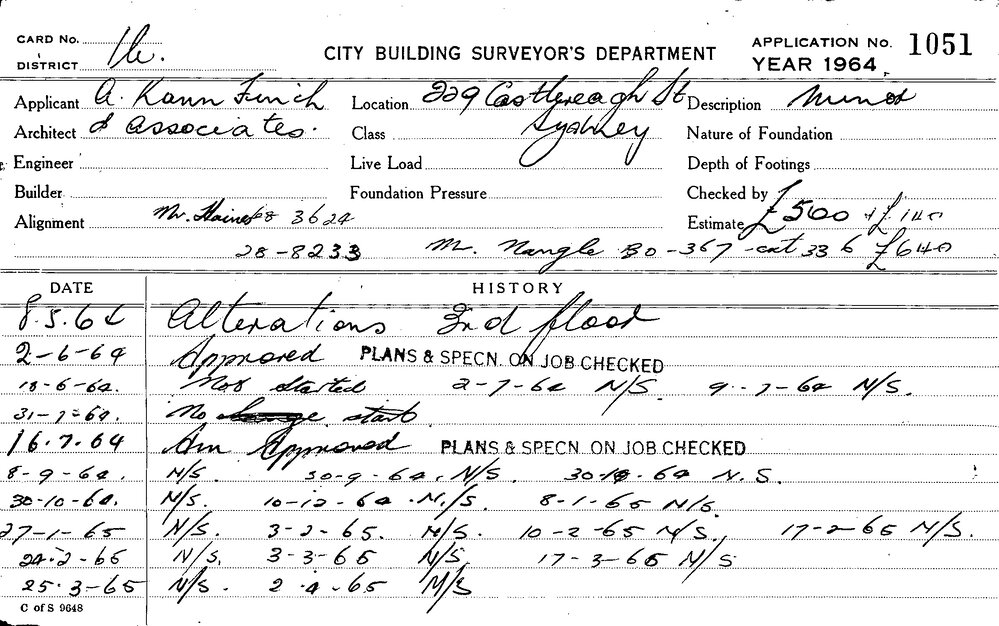 CARD No. 16. CITY BUILDING SURVEYOR'S DEPARTMENT APPLICATION No. 1051
DISTRICT YEAR 1964
Applicant A. Kann Finch Location 229 Castlereagh St Description Minor
Architect & Associates. Class Sydney Nature of Foundation
Engineer Live Load Depth of Footings
Builder Foundation Pressure Checked by
Alignment Mr. Haines 3624 Estimate £500 + £140
28-8233 Mr. Nangle BO-367 ext 336 £640
DATE HISTORY
8.5.64 Alterations 3rd floor
2-6-64 Approved PLANS & SPECN. ON JOB CHECKED
18-6-64. Not Started 2-7-64 N/S. 9-7-64 N/S.
31-7-64. No start
16.7.64 Am Approved PLANS & SPECN. ON JOB CHECKED
8-9-64. N/S. 30-9-64. N/S. 30-10-64 N.S.
30-10-64. N/S. 10-12-64. N/S. 8-1-65 N/S.
27-1-65 N/S. 3-2-65. N/S. 10-2-65 N/S., 17-2-65 N/S.
24-2-65 N/S. 3-3-65 N/S 17-3-65 N/S
25.3-65 N/S. 2-4-65 N/S
C of S 9648